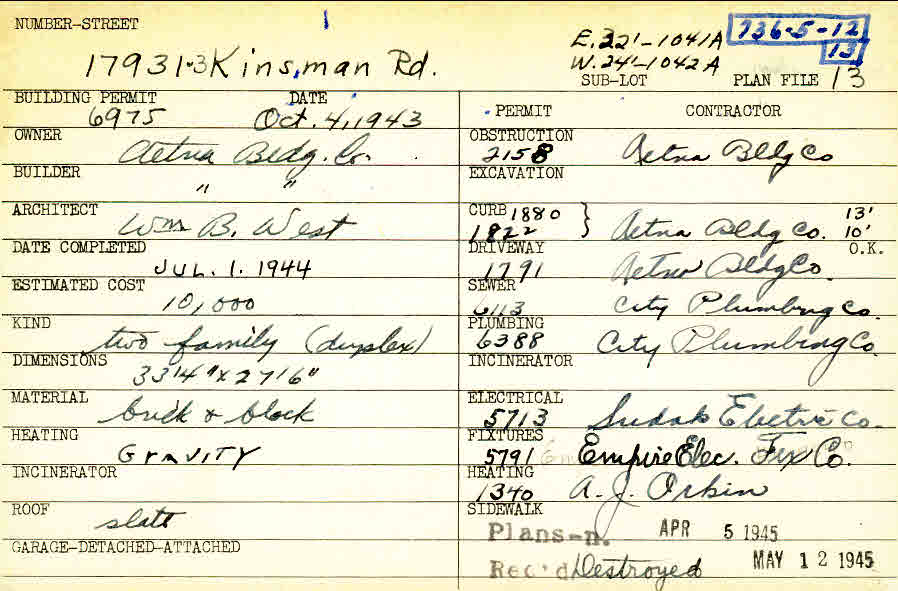 NUMBER-STREET
17931-3 Kinsman Rd.
E.22'-1041A
W.24'-1042A
736-5-12
13
SUB-LOT PLAN FILE 13
BUILDING PERMIT DATE
6975 Oct. 4, 1943
OWNER
Aetna Bldg. Co.
BUILDER
" "
ARCHITECT
Wm B. West
DATE COMPLETED
JUL. 1. 1944
ESTIMATED COST
10,000
KIND
two family (duplex)
DIMENSIONS
33'4"x27'6"
MATERIAL
brick & block
HEATING
GRAVITY
INCINERATOR
ROOF
slate
GARAGE-DETACHED-ATTACHED
PERMIT CONTRACTOR
OBSTRUCTION
2158 Aetna Bldg Co
EXCAVATION
CURB 1880 } 13'
1822 Aetna Bldg Co. 10'
DRIVEWAY O.K.
1791 Aetna Bldg Co.
SEWER
6113 City Plumbing Co.
PLUMBING
6388 City Plumbing Co.
INCINERATOR
ELECTRICAL
5713 Electric Co.
FIXTURES
5791 Empire Elec. Fix Co.
HEATING
1340 A. J. Orkin
SIDEWALK
Plans-n. APR 5 1945
Rec'd Destroyed MAY 12 1945